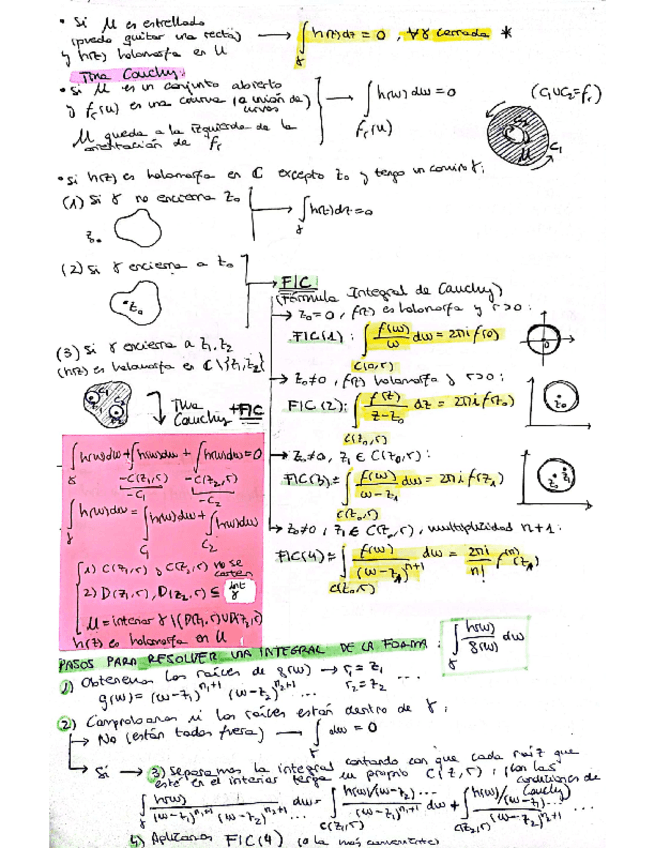 • Si U es estrellado
(puedo quitar una recta) → ∫_γ h(z)dz = 0, ∀γ cerrada *
y h(z) holomorfa en U
Tma Cauchy:
• Si U es un conjunto abierto
y fr(U) es una curva (o unión de curvas) → ∫_{fr(U)} h(w) dw = 0 (C₁∪C₂ = fr)
U queda a la izquierda de la
orientación de fr
C₁
U
• Si h(z) es holomorfa en ℂ excepto z₀ y tengo un camino γ:
(1) Si γ no encierra z₀ → ∫_γ h(z)dz = 0
z₀
(2) Si γ encierra a z₀ → FIC
z₀
(Fórmula Integral de Cauchy)
→ z₀=0, f(z) es holomorfa y r>0:
FIC(1): ∫_{C(0,r)} f(w)/w dw = 2πi f(0)
(3) Si γ encierra a z₁, z₂
(h(z) es holomorfa en ℂ\{z₁,z₂})
→ z₀≠0, f(z) holomorfa y r>0:
FIC(2): ∫_{C(z₀,r)} f(z)/(z-z₀) dz = 2πi f(z₀)
z₀
Tma Cauchy + FIC
∫_γ h(w)dw + ∫_{-C(z₁,r)} h(w)dw + ∫_{-C(z₂,r)} h(w)dw = 0
-C₁ -C₂
∫_γ h(w)dw = ∫_{C₁} h(w)dw + ∫_{C₂} h(w)dw
1) C(z₁,r) y C(z₂,r) no se cortan
2) D(z₁,r), D(z₂,r) ⊆ int γ
U = interior γ \ (D(z₁,r) ∪ D(z₂,r))
h(z) es holomorfa en U
→ z₀≠0, z₁ ∈ C(z₀,r):
FIC(3): ∫_{C(z₀,r)} f(w)/(w-z₁) dw = 2πi f(z₁)
z₀ z₁
→ z₀≠0, z₁ ∈ C(z₀,r), multiplicidad n+1:
FIC(4): ∫_{C(z₀,r)} f(w)/(w-z₁)ⁿ⁺¹ dw = 2πi/n! f⁽ⁿ⁾(z₁)
PASOS PARA RESOLVER UNA INTEGRAL DE LA FORMA: ∫_γ h(w)/g(w) dw
1) Obtenemos las raíces de g(w) → r₁ = z₁ ...
r₂ = z₂
g(w) = (w-z₁)^{n₁+1} (w-z₂)^{n₂+1} ...
2) Comprobamos si las raíces están dentro de γ:
→ No (están todas fuera) — ∫_γ dw = 0
→ Si → 3) Separamos la integral contando con que cada raíz que
esté en el interior tenga su propio C(z,r), (con las condiciones de Cauchy)
∫_γ h(w)/((w-z₁)^{n₁+1} (w-z₂)^{n₂+1} ...) dw = ∫_{C(z₁,r)} (h(w)/(w-z₂)...)/(w-z₁)^{n₁+1} dw + ∫_{C(z₂,r)} (h(w)/(w-z₁)...)/(w-z₂)^{n₂+1}
4) Aplicamos FIC(4) (o la más conveniente)